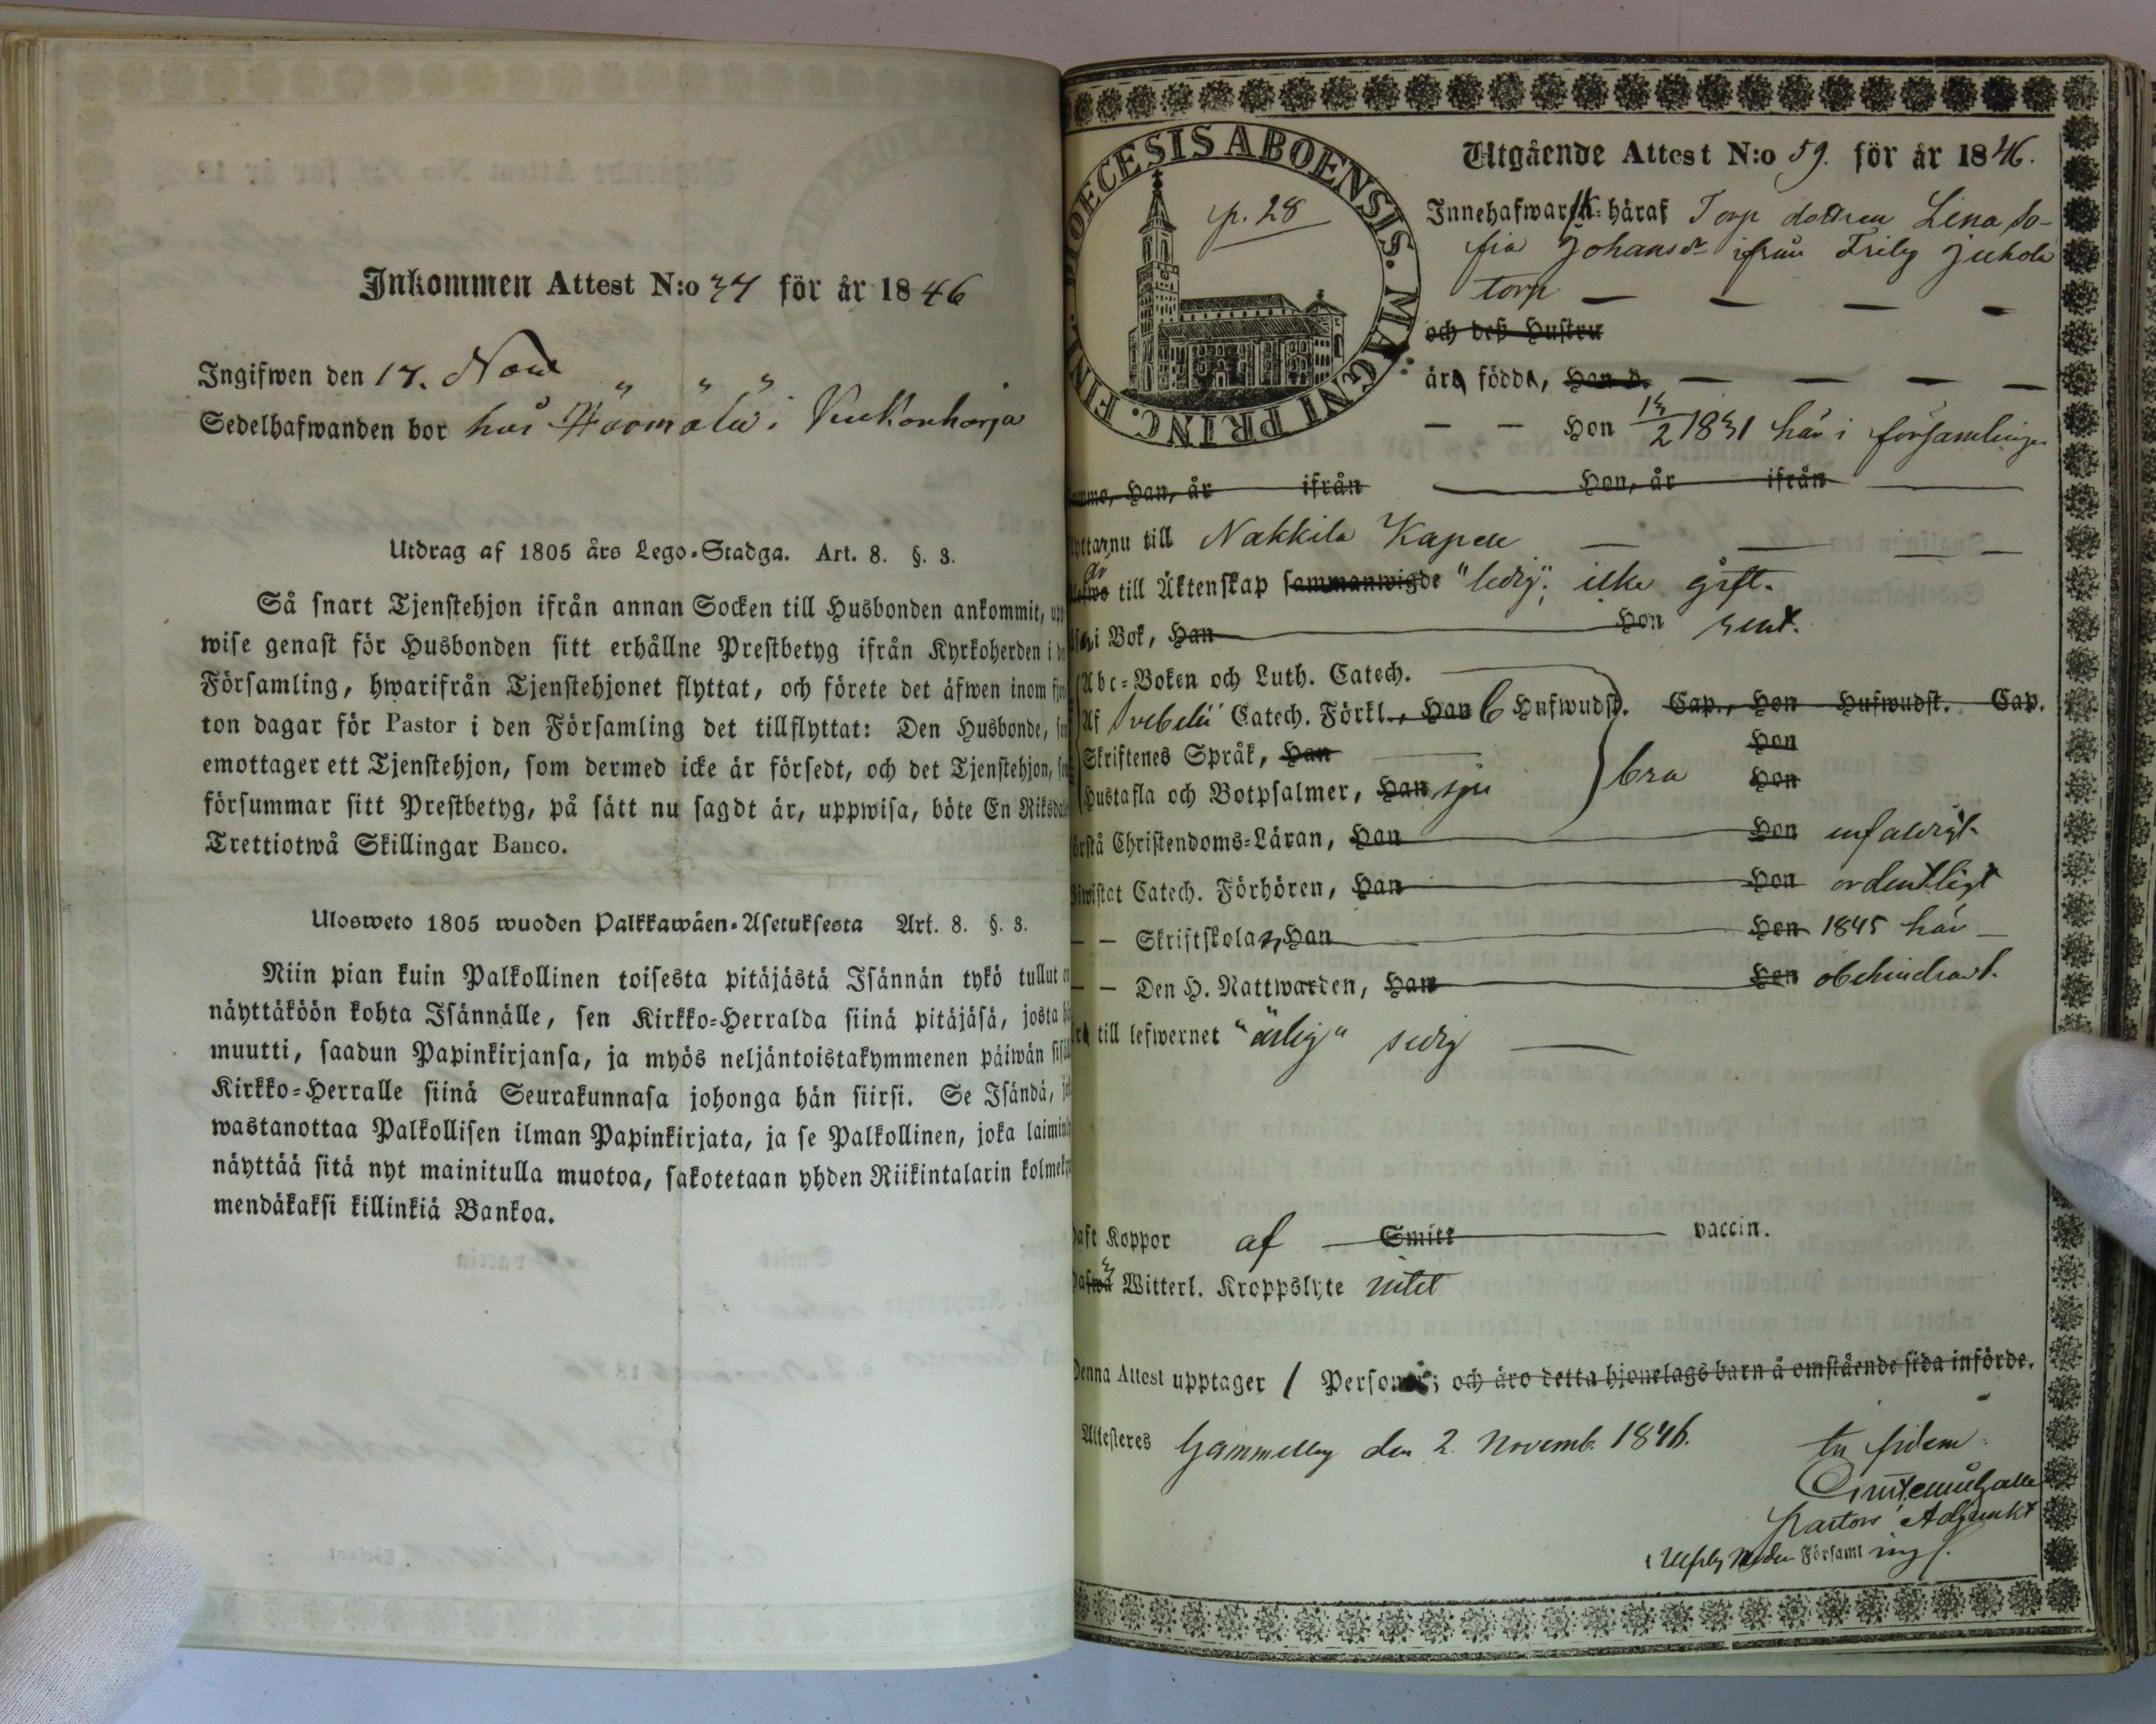 Inkommen Attest N:o 34 för år 1846
Ingifwen den 17. Nov
Sedelhafwanden bor hos i
Utdrag af 1805 års Lego-Stadga. Art. 8. §. 3.
Så snart Tjenstehjon ifrån annan Socken till Husbonden ankommit, upp
wise genast för Husbonden sitt erhållne Prestbetyg ifrån Kyrkoherden i
Församling, hwarifrån Tjenstehjonet flyttat, och förete det äfwen inom
ton dagar för Pastor i den Församling det tillflyttat: Den Husbonde,
emottager ett Tjenstehjon, som dermed icke är försedt, och det Tjenstehjon,
försummar sitt Prestbetyg, på sätt nu sagdt är, uppwisa, böte En Riksdal
Trettiotwå Skillingar Banco.
Ulosweto 1805 wuoden Palkkawäen-Asetuksesta Art. 8. §. 3.
Niin pian kuin Palkollinen toisesta pitäjästä Isännän tykö tullut
näyttäköön kohta Isännälle, sen Kirkko-Herralda siinä pitäjäsä, josta
muutti, saadun Papinkirjansa, ja myös neljäntoistakymmenen päiwän
Kirkko-Herralle siinä Seurakunnasa johonga hän siirsi. Se Isändä,
wastanottaa Palkollisen ilman Papinkirjata, ja se Palkollinen, joka
näyttää sitä nyt mainitulla muotoa, sakotetaan yhden Riikintalarin
mendäkaksi killinkiä Bankoa.
DIOECESIS ABOENSIS. MAGNI PRINC. FINL.
p. 28
Utgående Attest N:o 59. för år 1846.
Innehafwaren häraf Torp dottren Lena So-
fia Johansdr ifrån Friby Juhola
torp
och deß Hustru
äro födde, Han d.
Hon 13/2 1831 här i församlingen
Han, år ifrån Hon, år ifrån
nu till Nakkila Kapell
är till Äktenskap sammanwigde "ledig", icke gift.
i Bok, Han Hon rent.
Abc-Boken och Luth. Catech.
Af Svebelii Catech. Förkl., Han 6 Hufwudst. Cap., Hon Hufwudst. Cap.
Skriftenes Språk, Han Hon
Hustafla och Botpsalmer, Han sju bra Hon
Christendoms-Läran, Han Hon enfaldigt
Catech. Förhören, Han Hon ordentligt
Skriftskolan, Han Hon 1845 här
Den H. Nattwarden, Han Hon obehindrad.
till lefwernet "ärlig" sedig
Koppor af Smitt vaccin.
Witterl. Kroppslyte intet
Denna Attest upptager 1 Person; och äro detta hjonelags barn å omstående sida införde.
Attesteres Gammelby den 2. Novemb. 1846.
In fidem
Pastors Adjunkt
i Ulfsby Moder Församling.